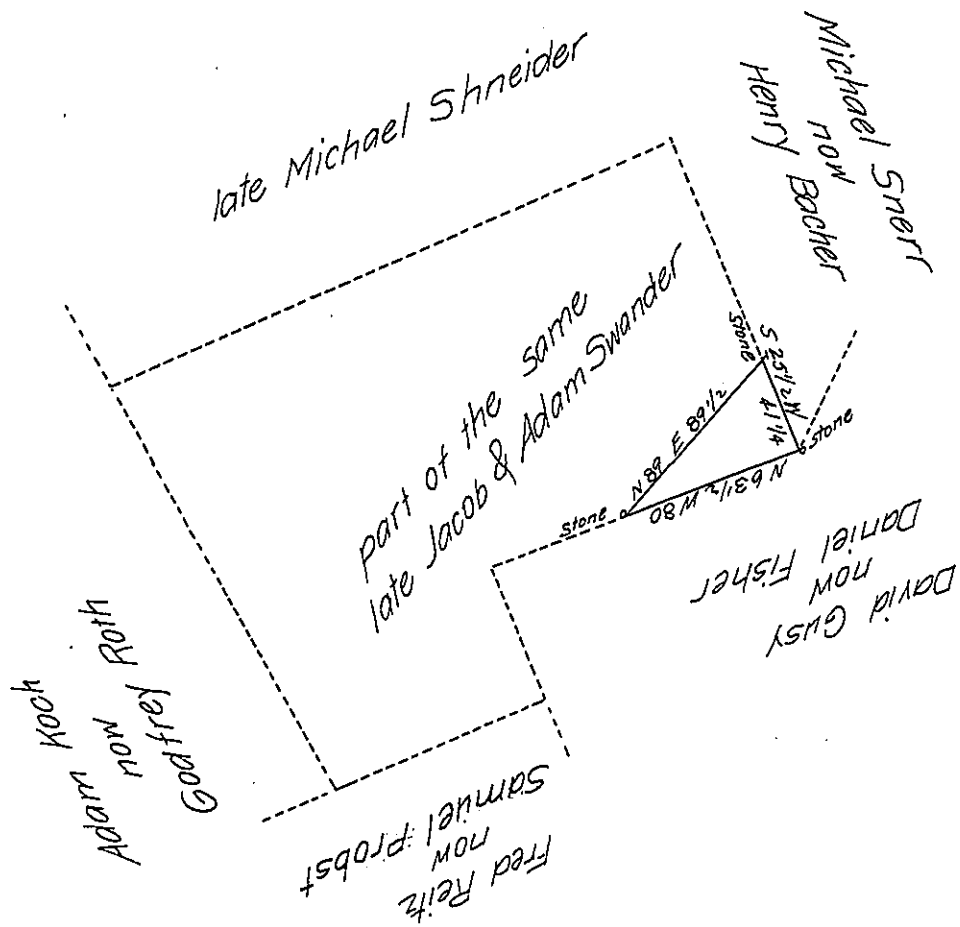 late Michael Shneider
Michael Snerr
now
Henry Bacher
part of the same
late Jacob & Adam Swander
Stone
S 25 1/2 W
41 1/4
stone
N 89 E 89 1/2
N 63 1/2 W 80
Stone
David Gusy
now
Daniel Fisher
Adam Koch
now
Godfrey Roth
Fred Reitz
now
Samuel Probst